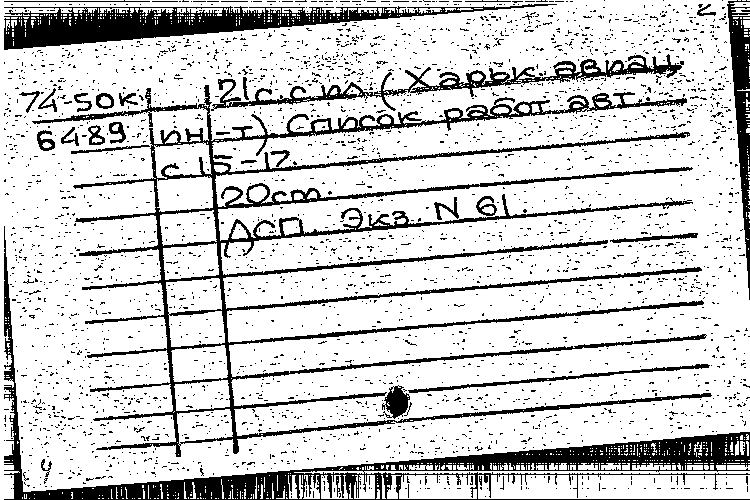 2
74-50к 21с. с ил. (Харьк. авиац.
6489 ин-т). Список работ авт.:
с. 15-17.
20 cm.
ДСП. Экз. N 61.